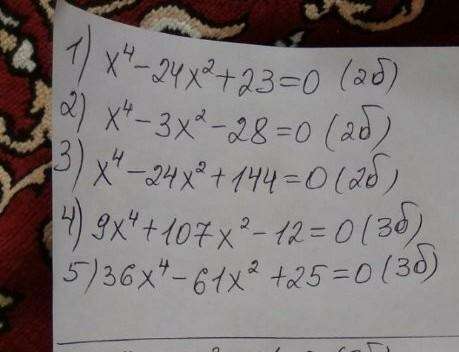 1) x⁴-24x²+23=0 (2б)
2) x⁴-3x²-28=0 (2б)
3) x⁴-24x²+144=0 (2б)
4) 9x⁴+107x²-12=0 (3б)
5) 36x⁴-61x²+25=0 (3б)